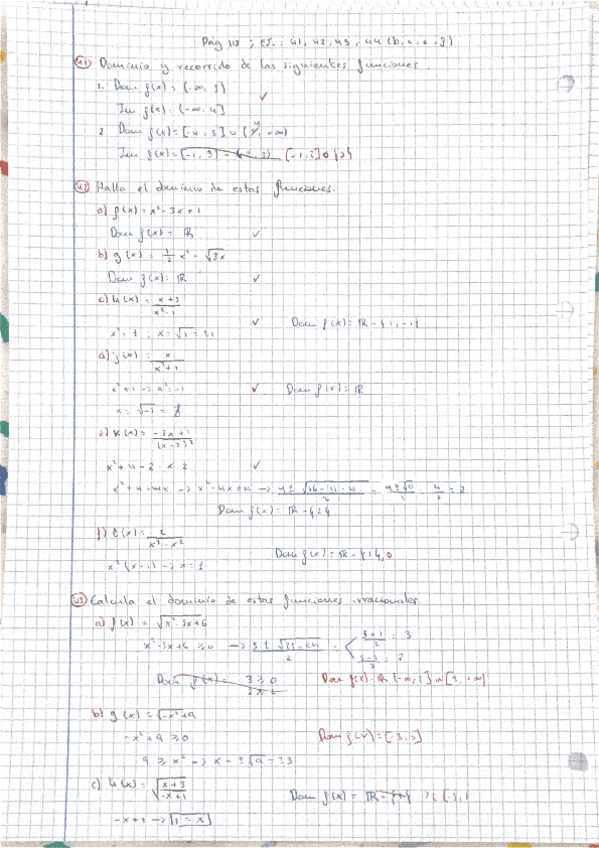 Pág 118 ; EJ.: 41, 42, 43, 44 (b, c, e, g)
41 Dominio y recorrido de las siguientes funciones.
1. Dom f(x) = (-∞,
Im f(x) = (-∞, 4]
2. Dom f(x) = [-4, 3] ∪ ( , +∞)
Im f(x) = [-1, 3)
42 Halla el dominio de estas funciones.
a) f(x) = x² - 3x + 1
Dom f(x) = ℝ
b) g(x) = 1/2 x² - √3x
Dom f(x) = ℝ
c) h(x) = x+3/x²-1
x² = 1 ; x = √1 = ±1 Dom f(x) = ℝ - {1, -1}
d) j(x) = x/x²+1
x²+1 -> x² = -1 Dom f(x) = ℝ
x = √-1 = ∄
e) k(x) = -2x+1/(x-2)²
x² + 4 - 2 · x · 2
x² + 4 - 4x -> x² - 4x + 4 -> 4 ± √16-4·1·4/2 = 4±√0/2 = 4/2 = 2
Dom f(x) = ℝ - {2}
f) l(x) = 2/x³-x²
Dom f(x) = ℝ - {1, 0
x² (x-1) -> x = 1
43 Calcula el dominio de estas funciones irracionales.
a) f(x) = √x²-5x+6
x²-5x+6 ≥ 0 -> 5 ± √25-24/2 = 5+1/2 = 3
5-1/2 = 2
Dom f(x) = 3 ≥ 0 Dom f(x) = ℝ (-∞, 2] ∪ [3, +∞)
2 ≥ 0
b) g(x) = √-x²+9
-x²+9 ≥ 0 Dom f(x) = [-3, 3]
9 ≥ x² -> x = ±√9 = ±3
c) h(x) = √x+3/-x+1
Dom f(x) = ℝ - {
-x+1 -> 1 = x